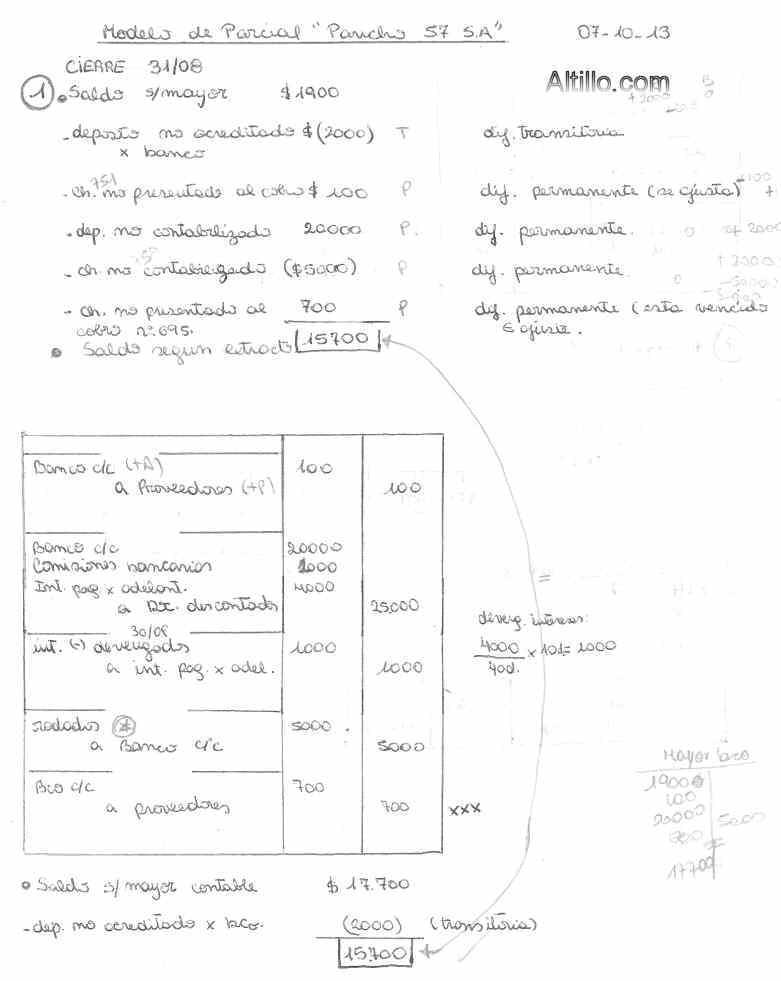 Modelo de Parcial "Pancho S7 S.A" 07-10-13
CIERRE 31/08
Altillo.com
1 • Saldo s/mayor $1900
- deposto no acreditado $(2000) T dif. transitoria
x banco
751
- ch. no presentado al cobro $ 100 P dif. permanente (se ajusta)
- dep. no contabilizado 20000 P. dif. permanente.
- ch. no contabilizado ($5000) P dif. permanente.
- ch. no presentado al 700 P dif. permanente (esta vencido
cobro nº695. ajusta.
• Saldo segun extracto 15700
Banco c/c (+A) 100
a Proveedores (+P) 100
Banco c/c 20000
Comisiones bancarias 1000
Int. pag x adelant. 4000
a Dx. descontados 25000
30/08
int. (-) devengados 1000
a int. pag. x adel. 1000
deveng. intereses:
4000 x 10d = 1000
40d.
rodados 5000
a Banco c/c 5000
Bco c/c 700
a proveedores 700 xxx
Mayor bco
19000
100
20000 5000
700
17700
• Saldo s/ mayor contable $ 17.700
- dep. no acreditado x bco. (2000) (transitoria)
15700